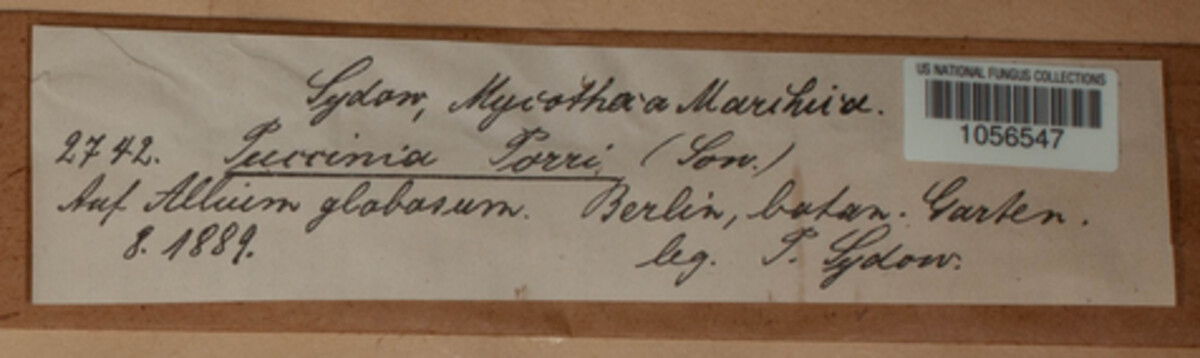 Sydow, Mycotheca Marchica.
US NATIONAL FUNGUS COLLECTIONS
1056547
2742. Puccinia Porri (Sow.)
Auf Allium globosum. Berlin, botan. Garten.
8. 1889. leg. P. Sydow.